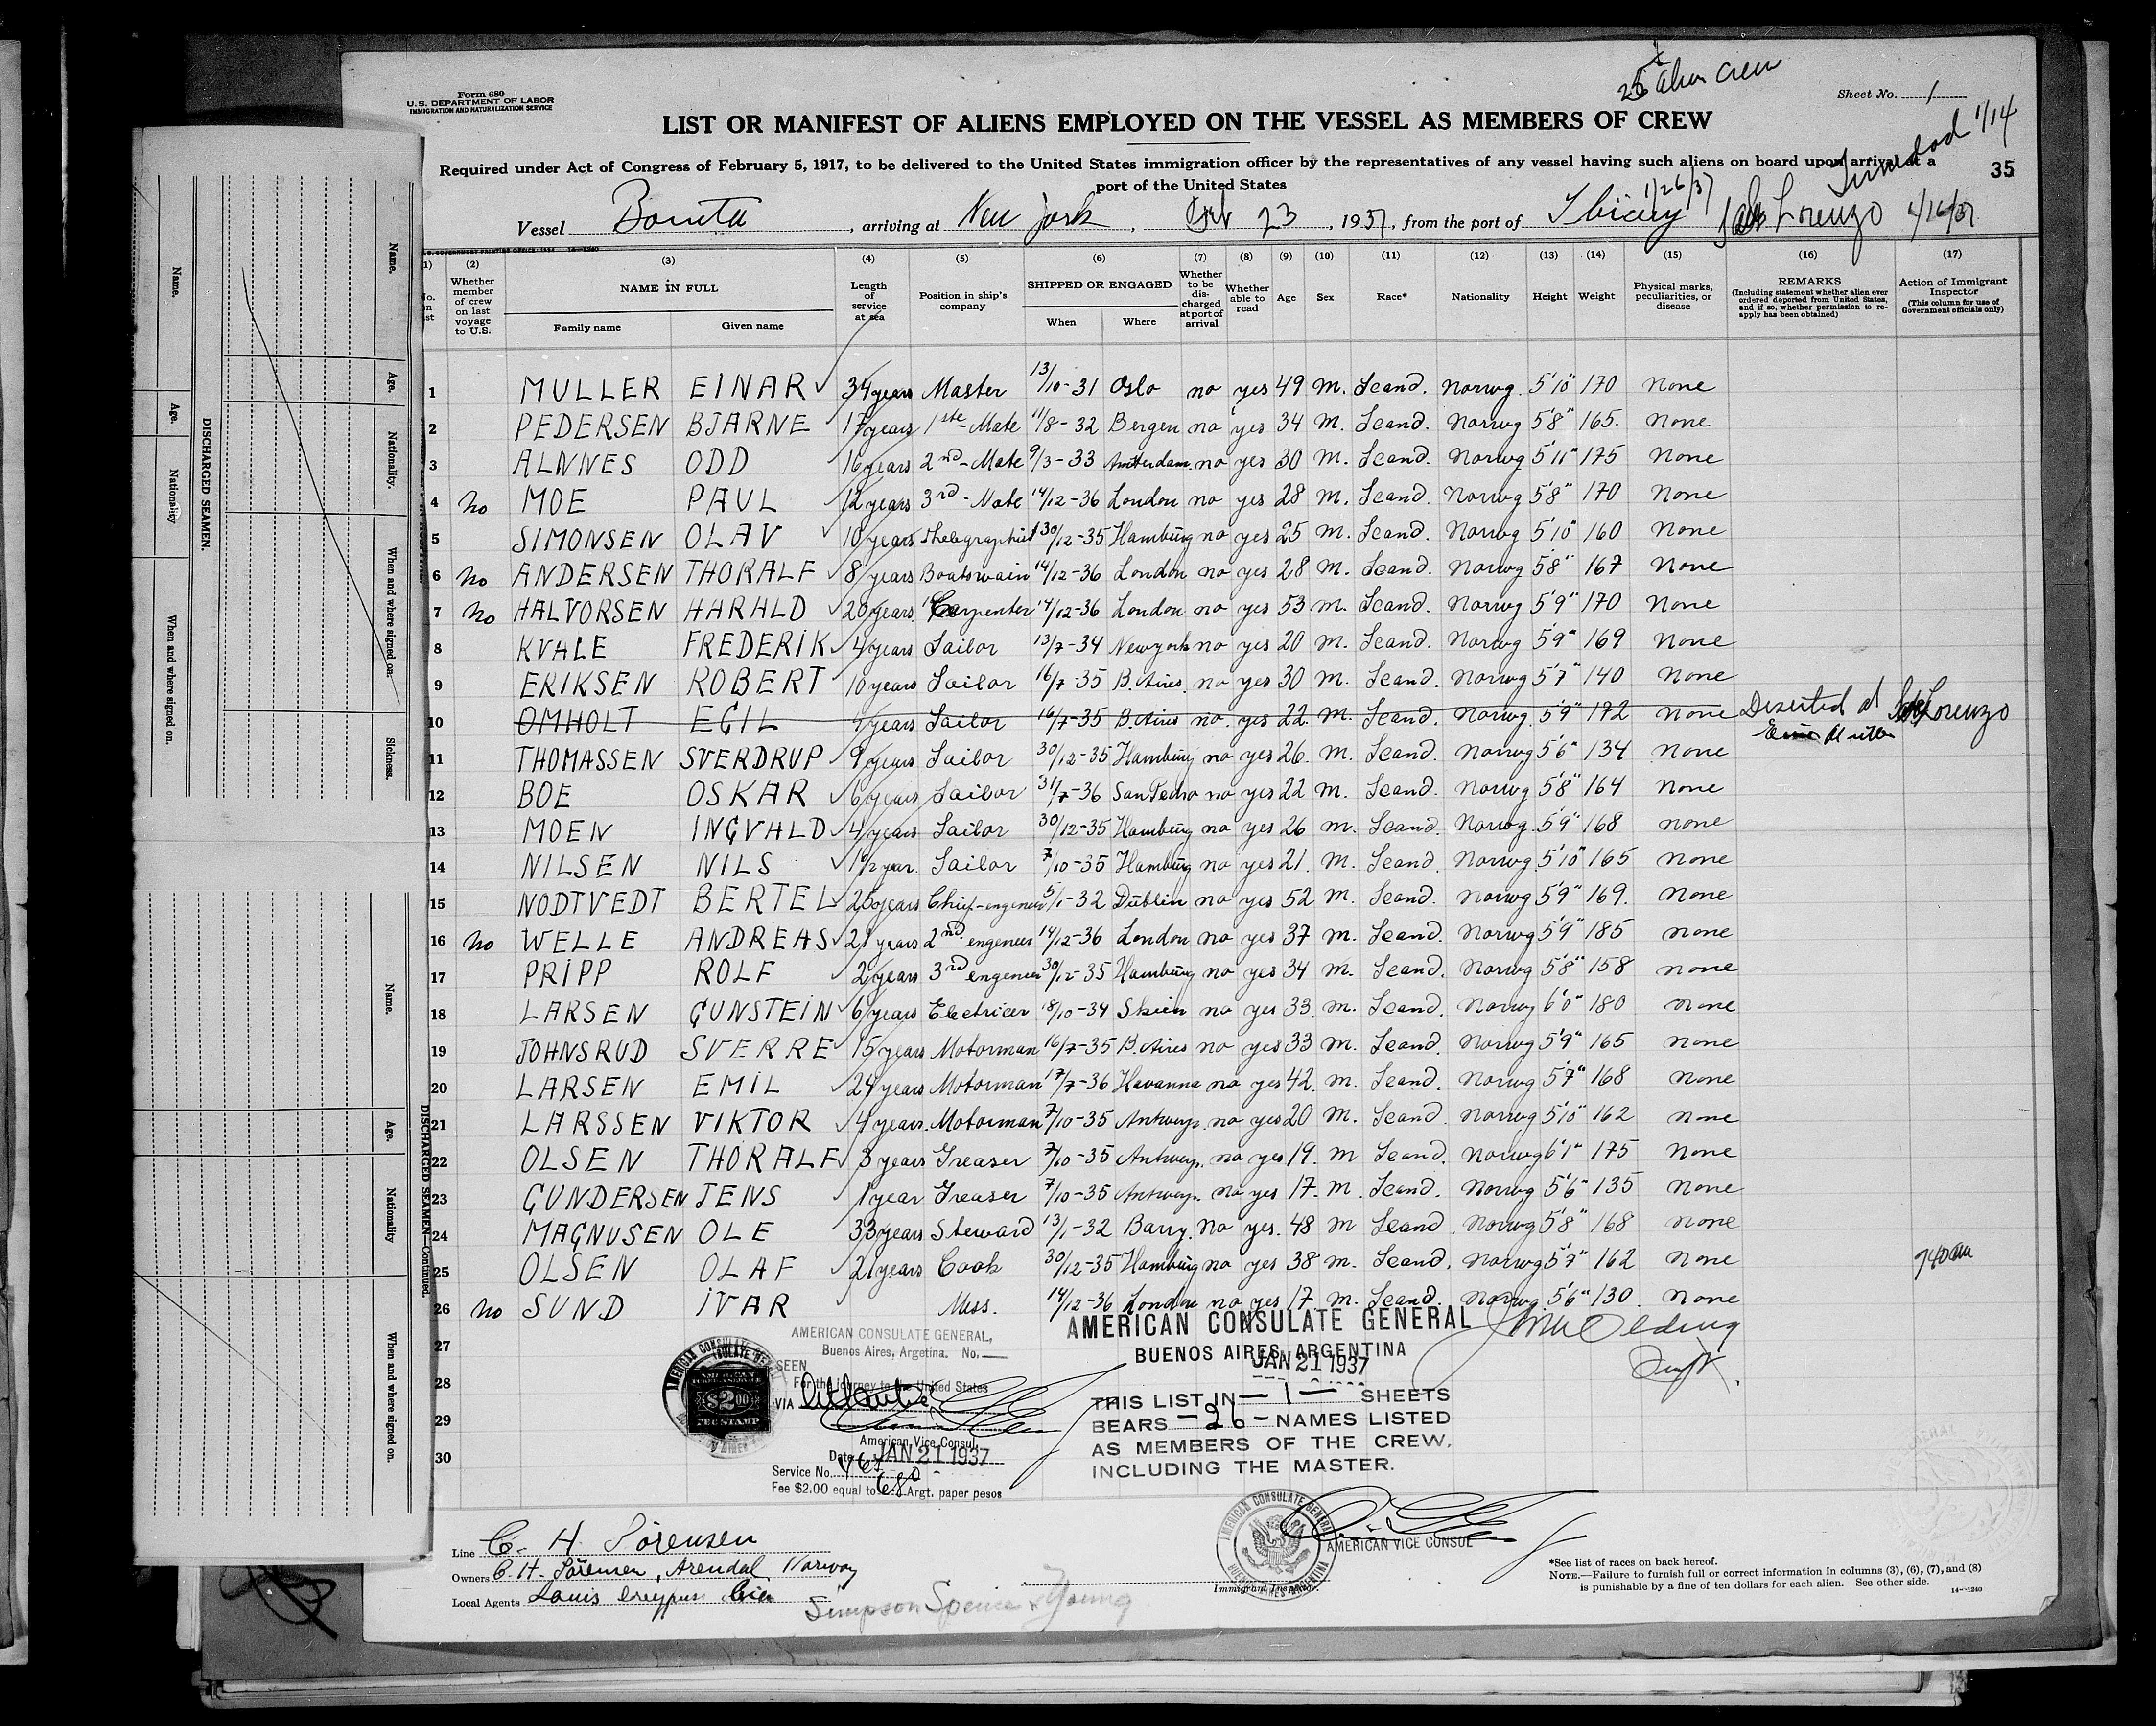 25 alien crew
Form 680
U.S. DEPARTMENT OF LABOR
IMMIGRATION AND NATURALIZATION SERVICE
Sheet No. 1
LIST OR MANIFEST OF ALIENS EMPLOYED ON THE VESSEL AS MEMBERS OF CREW
Required under Act of Congress of February 5, 1917, to be delivered to the United States immigration officer by the representatives of any vessel having such aliens on board upon arrival at a
port of the United States
35
1/14
1/26/37
Vessel Bonita, arriving at New York, Feb 23, 1937, from the port of San Lorenzo 1/16/37
(1) (2) (3) (4) (5) (6) (7) (8) (9) (10) (11) (12) (13) (14) (15) (16) (17)
No. on list
Whether member of crew on last voyage to U.S.
NAME IN FULL
Family name Given name
Length of service at sea
Position in ship's company
SHIPPED OR ENGAGED
When Where
Whether to be discharged at port of arrival
Whether able to read
Age Sex Race* Nationality Height Weight
Physical marks, peculiarities, or disease
REMARKS
(Including statement whether alien ever ordered deported from United States, and if so, whether permission to reapply has been obtained)
Action of Immigrant Inspector
(This column for use of Government officials only)
1 MULLER EINAR 34 years Master 13/10-31 Oslo no yes 49 M. Scand. Norwg. 5'10" 170 None
2 PEDERSEN BJARNE 17 years 1ste Mate 11/8-32 Bergen no yes 34 M. Scand. Norwg 5'8" 165. None
3 ALNNES ODD 16 years 2nd-Mate 9/3-33 Amsterdam. no yes 30 M. Scand. Norwg 5'11" 175 None
4 No MOE PAUL 12 years 3rd-Mate 14/12-36 London no yes 28 M. Scand. Norwg 5'8" 170 None
5 SIMONSEN OLAV 10 years Thelegraphist 30/12-35 Hamburg no yes 25 M. Scand. Norwg 5'10" 160 None
6 No ANDERSEN THORALF 8 years Boatswain 14/12-36 London no yes 28 M. Scand. Norwg 5'8" 167 None
7 No HALVORSEN HARALD 20 years Carpenter 14/12-36 London no yes 53 M. Scand. Norwg 5'9" 170 None
8 KVALE FREDERIK 4 years Sailor 13/7-34 Newyork no yes 20 M. Scand. Norwg 5'9" 169 None
9 ERIKSEN ROBERT 10 years Sailor 16/7-35 B. Aires. no yes 30 M. Scand. Norwg 5'7" 140 None
10 OMHOLT EGIL 4 years Sailor 16/7-35 B. Aires no yes 22 M. Scand. Norwg. 5'9" 172 None Deserted at San Lorenzo
11 THOMASSEN SVERDRUP 9 years Sailor 30/12-35 Hamburg no yes 26. M. Scand. Norwg 5'6" 134 None
12 BOE OSKAR 6 years Sailor 31/7-36 San Pedro no yes 22 M. Scand. Norwg 5'8" 164 None
13 MOEN INGVALD 4 years Sailor 30/12-35 Hamburg no yes 26 M. Scand. Norwg. 5'9" 168 None
14 NILSEN NILS 1 1/2 year. Sailor 7/10-35 Hamburg no yes 21. M. Scand. Norwg. 5'10" 165 None
15 NODTVEDT BERTEL 25 years Chief-engeneer 5/1-32 Dublin no yes 52 M. Scand. Norwg 5'9" 169. None
16 No WELLE ANDREAS 21 years 2nd engeneer 14/12-36 London no yes 37 M. Scand. Norwg 5'9" 185 None
17 PRIPP ROLF 2 years 3rd engeneer 30/12-35 Hamburg no yes 34 M. Scand. Norwg 5'8" 158 None
18 LARSEN GUNSTEIN 6 years Electricer 18/10-34 Skien no yes 33 M. Scand. Norwg 6'0" 180 None
19 JOHNSRUD SVERRE 15 years Motorman 16/7-35 B. Aires no yes 33 M. Scand. Norwg 5'9" 165 None
20 LARSEN EMIL 24 years Motorman 17/7-36 Havanna no yes 42. M. Scand. Norwg 5'7" 168 None
21 LARSSEN VIKTOR 4 years. Motorman 7/10-35 Antwerp. no yes 20 M. Scand. Norwg 5'10" 162 None
22 OLSEN THORALF 3 years Greaser 7/10-35 Antwerp. no yes 19. M Scand. Norwg 6'1" 175 None
23 GUNDERSEN JENS 1 year Greaser 7/10-35 Antwerp. no yes 17. M. Scand. Norwg 5'6" 135 None
24 MAGNUSEN OLE 33 years Steward 13/1-32 Barry. no yes. 48 M Scand. Norwg 5'8" 168 None
25 OLSEN OLAF 21 years Cook 30/12-35 Hamburg no yes 38 M. Scand. Norwg 5'7" 162 None 740am
26 No SUND IVAR Mess. 14/12-36 London no yes 17. M. Scand. Norwg. 5'6" 130. None
27
28
29
30
AMERICAN CONSULATE GENERAL,
Buenos Aires, Argetina. No.
SEEN
For the journey to the United States
VIA
American Vice Consul.
Date JAN 21 1937
Service No. 467
Fee $2.00 equal to 6.80 Argt. paper pesos
$2.00
FEE STAMP
AMERICAN CONSULATE GENERAL
BUENOS AIRES, ARGENTINA
JAN 21 1937
THIS LIST IN -1- SHEETS
BEARS -26- NAMES LISTED
AS MEMBERS OF THE CREW,
INCLUDING THE MASTER.
AMERICAN CONSULATE GENERAL
BUENOS AIRES ARGENTINA
AMERICAN VICE CONSUL
Immigrant Inspector.
Line C. H. Sörensen
Owners C. H. Sörensen, Arendal Norway
Local Agents Louis Dreyfus
Simpson Spence & Young
*See list of races on back hereof.
NOTE.—Failure to furnish full or correct information in columns (3), (6), (7), and (8)
is punishable by a fine of ten dollars for each alien. See other side.
14—1240
DISCHARGED SEAMEN.
Name. Age. Nationality When and where signed on.
Name. Age. Nationality. When and where signed on. Sickness.
DISCHARGED SEAMEN—Continued.
Name. Age. Nationality When and where signed on.